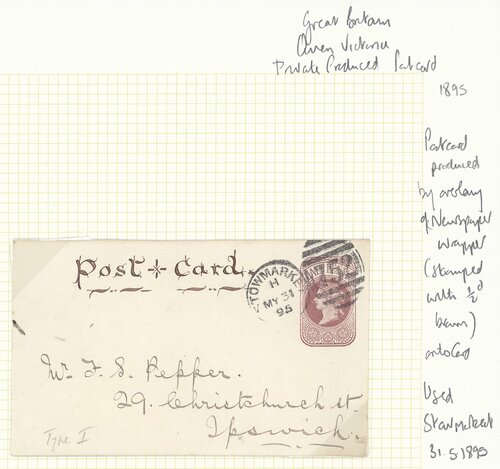 Great Britain
Queen Victoria
Private Produced Postcard
1895
Postcard
produced
by overlay
of Newspaper
wrapper
(stamped
with ½d
brown)
onto Card
Used
Stowmarket
31.5.1895
Post Card.
STOWMARKET
H
MY 31
95
Mr F. S. Pepper.
29. Christchurch st.
Ipswich.
Type I